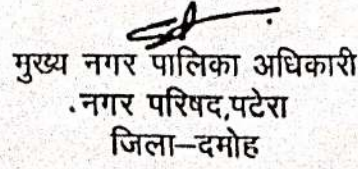 मुख्य नगर पालिका अधिकारी
.नगर परिषद,पटेरा
जिला–दमोह